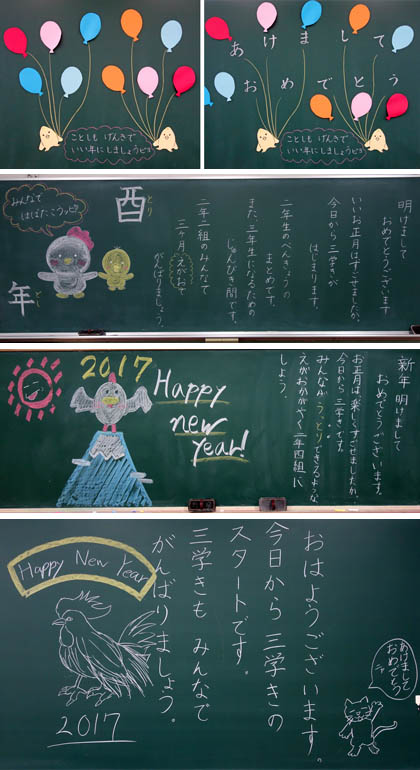 ことしも げんきで
いい年にしましょうピヨ
あけまして
おめでとう
ことしも げんきで
いい年にしましょうピヨ
明けまして
おめでとうございます
いいお正月はすごせましたか。
今日から三学きが
はじまります。
二年生のべんきょうの
まとめです。
また、三年生になるための
じゅんび期間です。
二年二組のみんなで
三ヶ月えがおで
がんばりましょう。
酉
とり
年
どし
みんなで
はばたこうッピ!!
新年明けまして
おめでとうございます。
お正月は楽しくすごせましたか。
今日から三学きです。
みんながうっとりできるような
えがおかがやく二年四組に
しよう。
2017
Happy
new
year!
おはようございます。
今日から三学きの
スタートです。
三学きもみんなで
がんばりましょう。
Happy New Year
2017
あけまして
おめでとう
ニャ